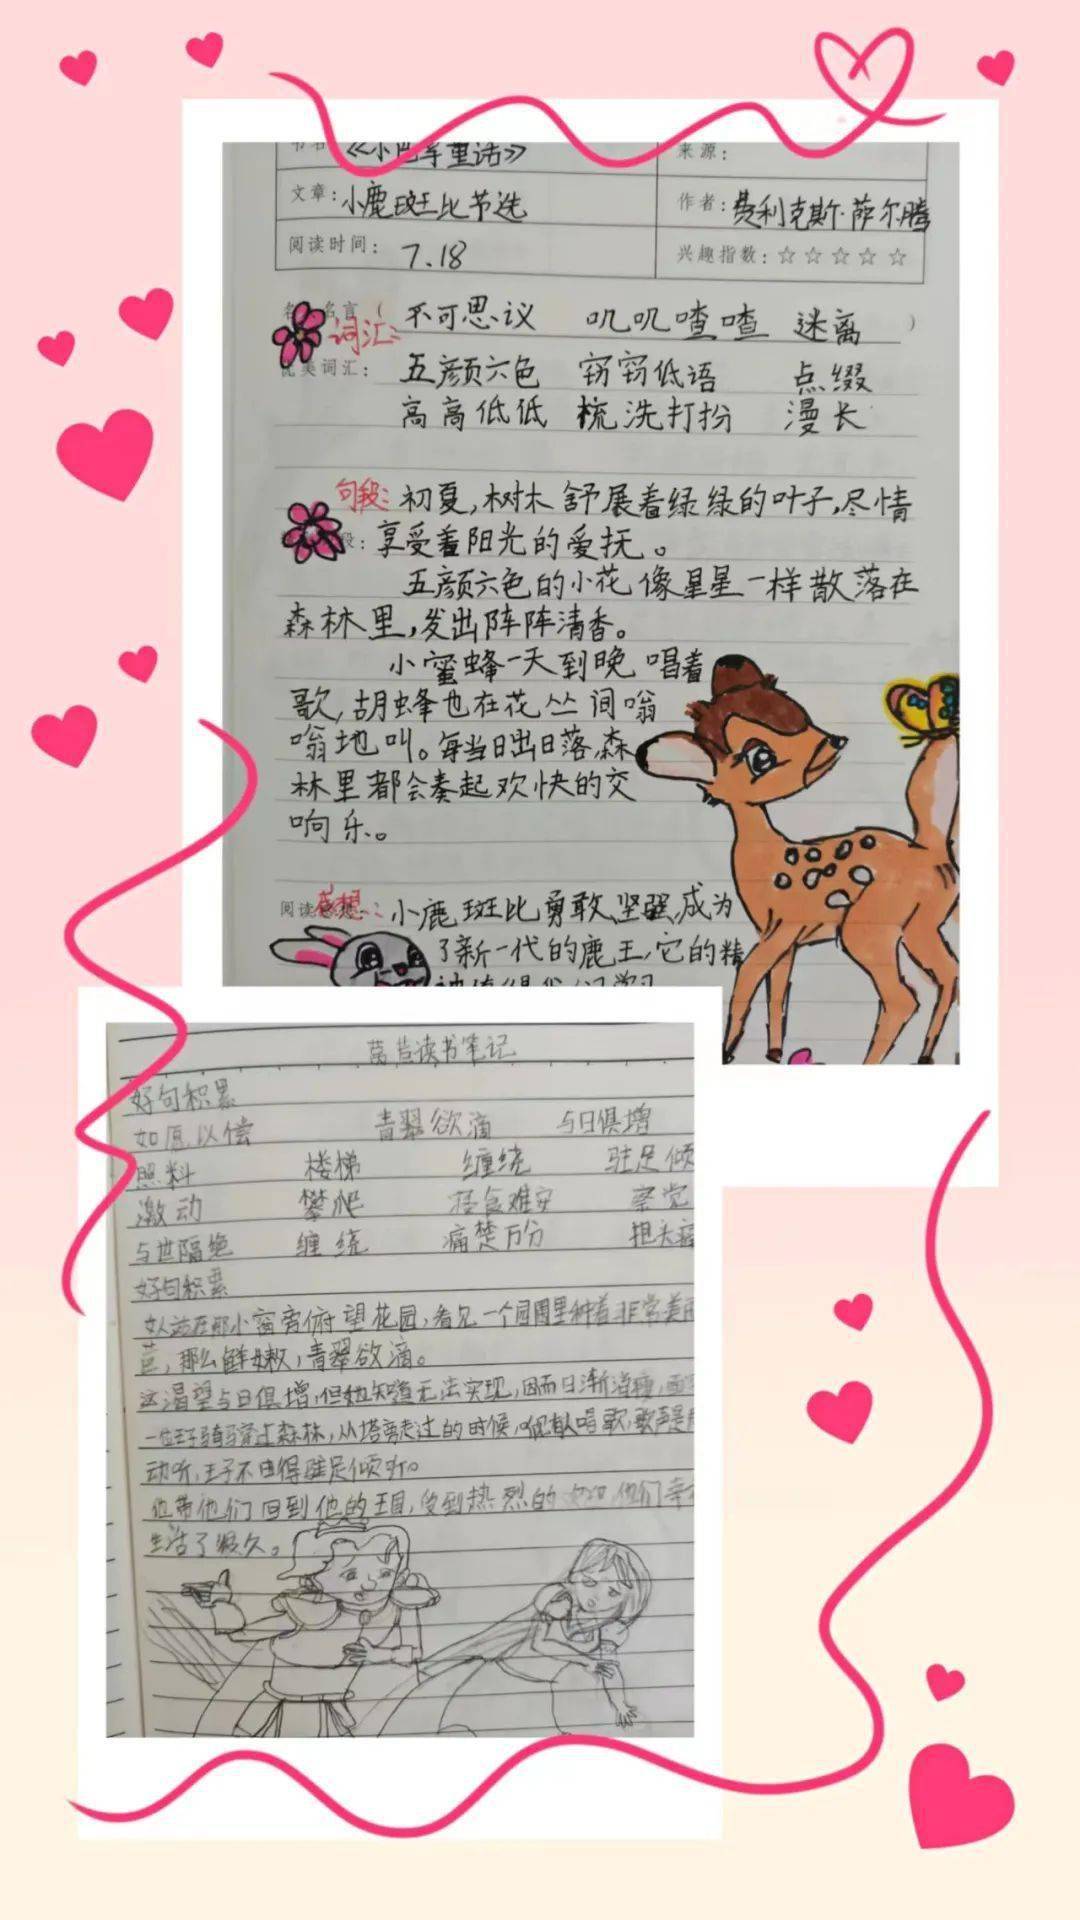 书名 《小巴掌童话》 来源：
文章：小鹿斑比节选 作者：费利克斯·萨尔腾
阅读时间：7.18 兴趣指数：☆☆☆☆☆
名 名言（ ）
词汇： 不可思议 叽叽喳喳 迷离
优美词汇： 五颜六色 窃窃低语 点缀
高高低低 梳洗打扮 漫长
句段： 初夏，树木舒展着绿绿的叶子，尽情
段：享受着阳光的爱抚。
五颜六色的小花像星星一样散落在
森林里，发出阵阵清香。
小蜜蜂一天到晚唱着
歌，胡蜂也在花丛间嗡
嗡地叫。每当日出日落，森
林里都会奏起欢快的交
响乐。
阅读感想：小鹿斑比勇敢、坚强，成为
了新一代的鹿王，它的精
神值得我们学习
莴苣读书笔记
好句积累
如愿以偿 青翠欲滴 与日俱增
照料 楼梯 缠绕 驻足倾
激动 攀爬 寝食难安 察觉
与世隔绝 缠绕 痛楚万分
好句积累
小窗旁俯望花园，看见一个园圃里种着非常美丽
苣，那么鲜嫩，青翠欲滴。
这渴望与日俱增，但她知道无法实现，因而日渐消瘦，面
一位王子骑马穿过森林，从塔旁走过的时候，听到有人唱歌，歌声是
动听，王子不由得驻足倾听。
他带他们回到他的王国，受到热烈的 他们幸
生活了很久。